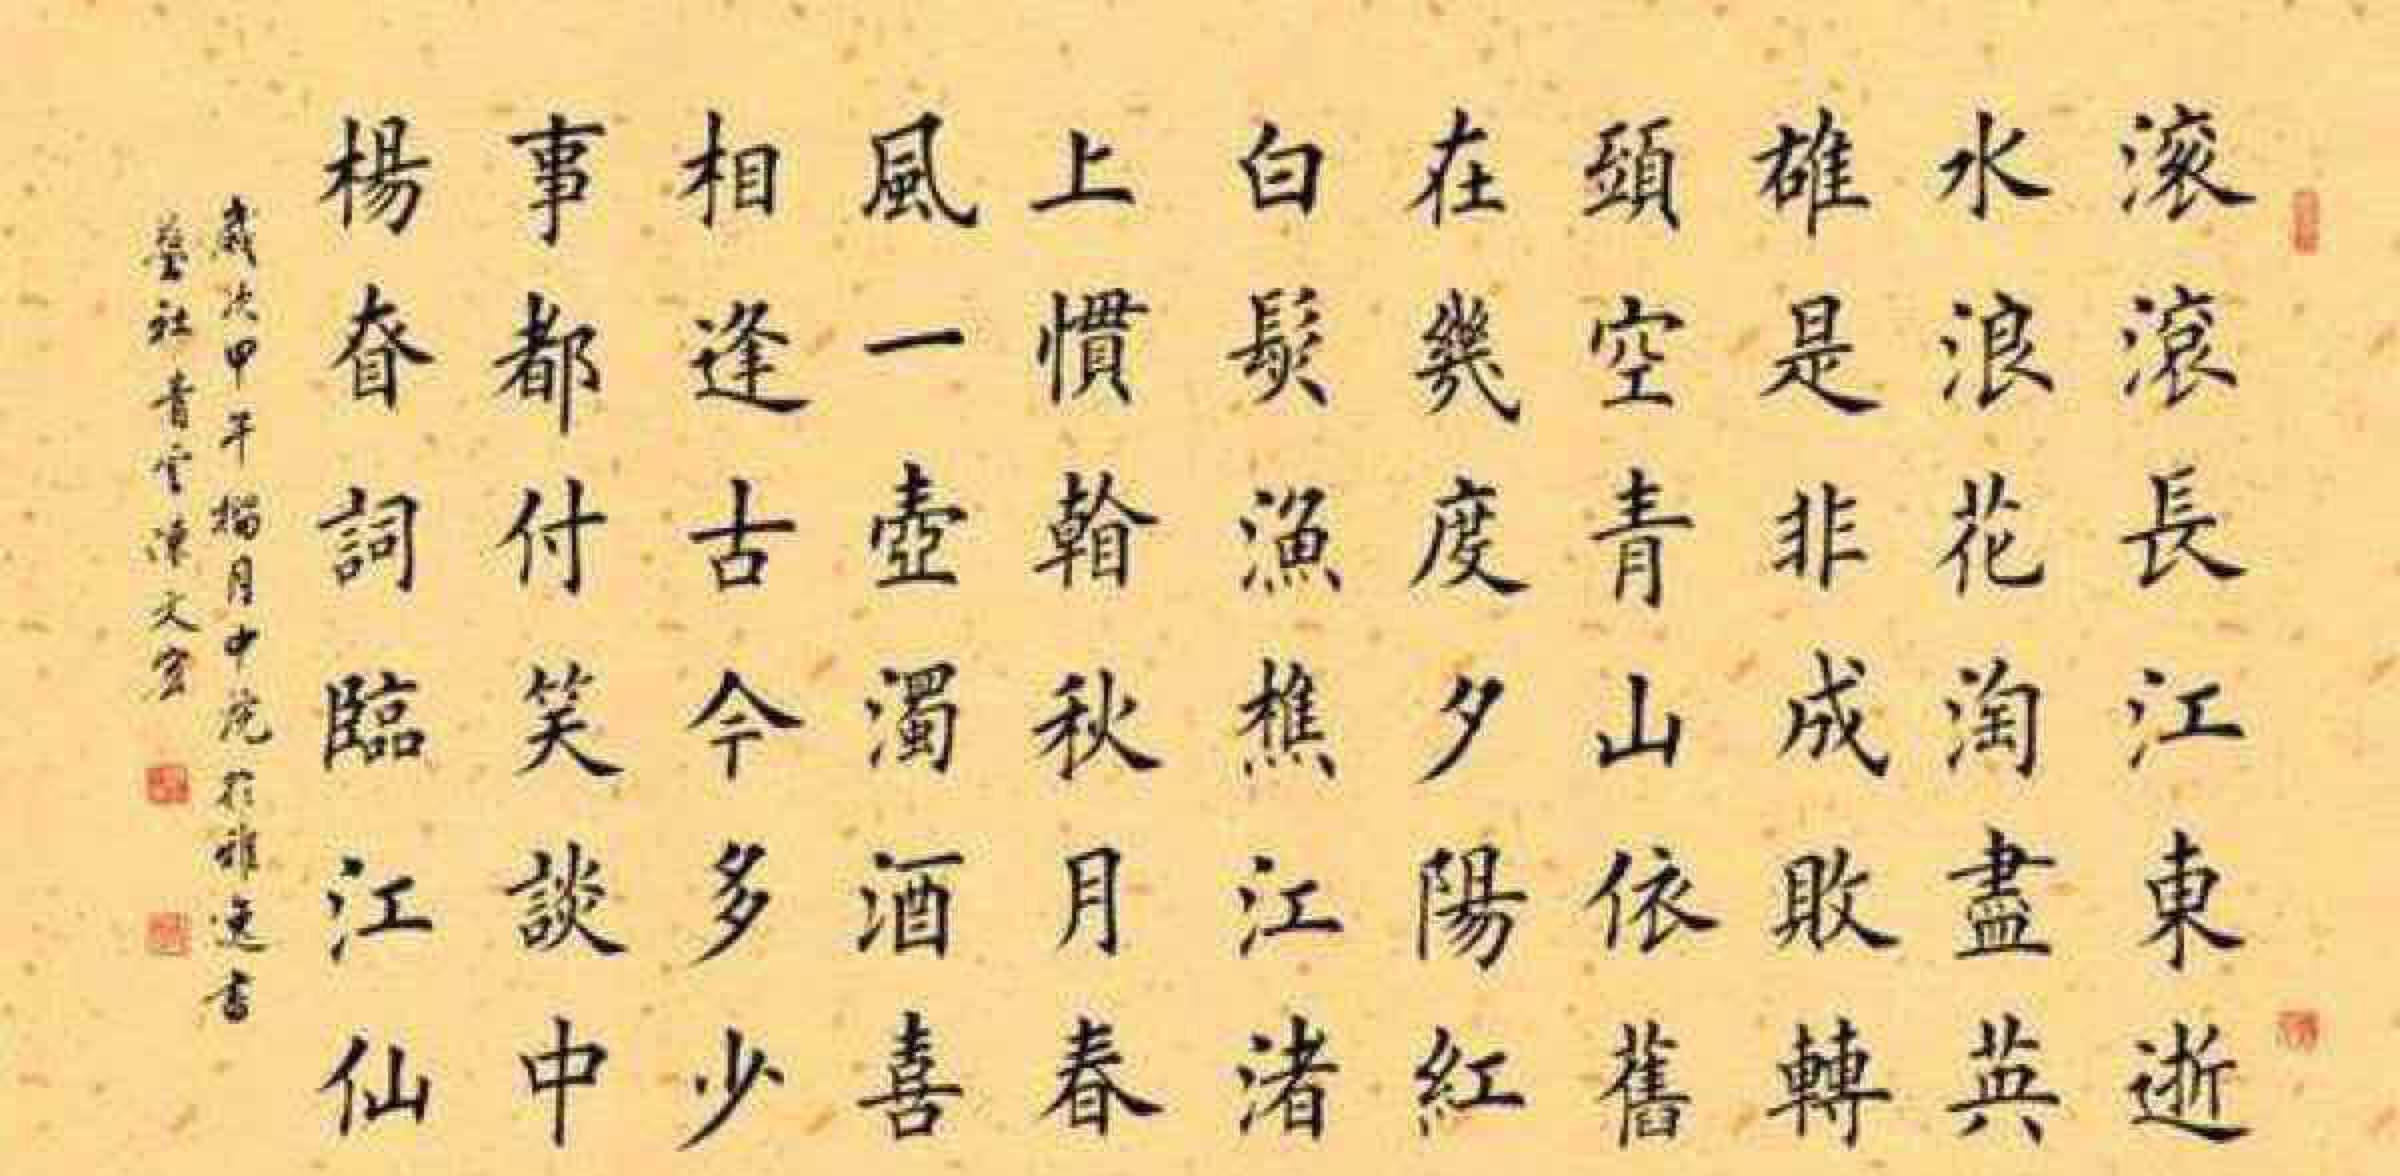 滾滾長江東逝
水浪花淘盡英
雄是非成敗轉
頭空青山依舊
在幾度夕陽紅
白髮漁樵江渚
上慣看秋月春
風一壺濁酒喜
相逢古今多少
事都付笑談中
楊眘詞臨江仙
歲次甲午榴月中浣於雅逸書
藝社青雲陳文